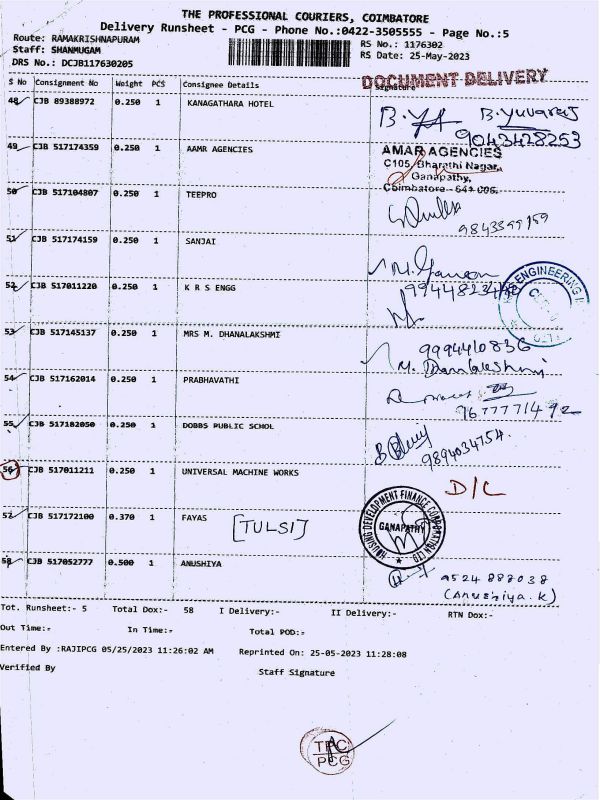 THE PROFESSIONAL COURIERS, COIMBATORE
Delivery Runsheet - PCG - Phone No.:0422-3505555 - Page No.:5
Route: RAMAKRISHNAPURAM
Staff: SHANMUGAM
DRS No.: DCJB117630205
RS No.: 1176302
RS Date: 25-May-2023
DOCUMENT DELIVERY
S No Consignment No Weight PCS Consignee Details Signature
48 CJB 89388972 0.250 1 KANAGATHARA HOTEL
B. Yuvaraj
9043428253
49 CJB 517174359 0.250 1 AAMR AGENCIES
AMAR AGENCIES
C105, Bharathi Nagar,
Ganapathy,
Coimbatore - 641 006.
50 CJB 517104807 0.250 1 TEEPRO
51 CJB 517174159 0.250 1 SANJAI
52 CJB 517011220 0.250 1 K R S ENGG
ENGINEERING
53 CJB 517145137 0.250 1 MRS M. DHANALAKSHMI
9994410836
M. Dhanalakshmi
54 CJB 517162014 0.250 1 PRABHAVATHI
55 CJB 517182050 0.250 1 DOBBS PUBLIC SCHOL
9894034754.
56 CJB 517011211 0.250 1 UNIVERSAL MACHINE WORKS
D/L
57 CJB 517172100 0.370 1 FAYAS
[TULSI]
HOUSING DEVELOPMENT FINANCE CORPORATION LTD
GANAPATHY
58 CJB 517052777 0.500 1 ANUSHIYA
9524 888038
(Anushiya.K)
Tot. Runsheet:- 5 Total Dox:- 58 I Delivery:- II Delivery:- RTN Dox:-
Out Time:- In Time:- Total POD:-
Entered By :RAJIPCG 05/25/2023 11:26:02 AM Reprinted On: 25-05-2023 11:28:08
Verified By Staff Signature
TPC
PCG